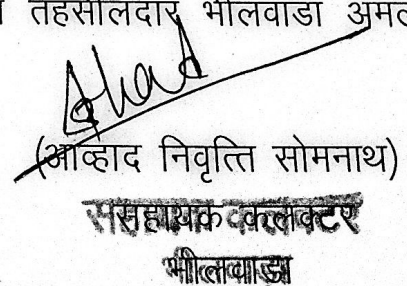 तहसीलदार भीलवाडा अमल
(आव्हाद निवृत्ति सोमनाथ)
सहायक कलक्टर
भीलवाडा